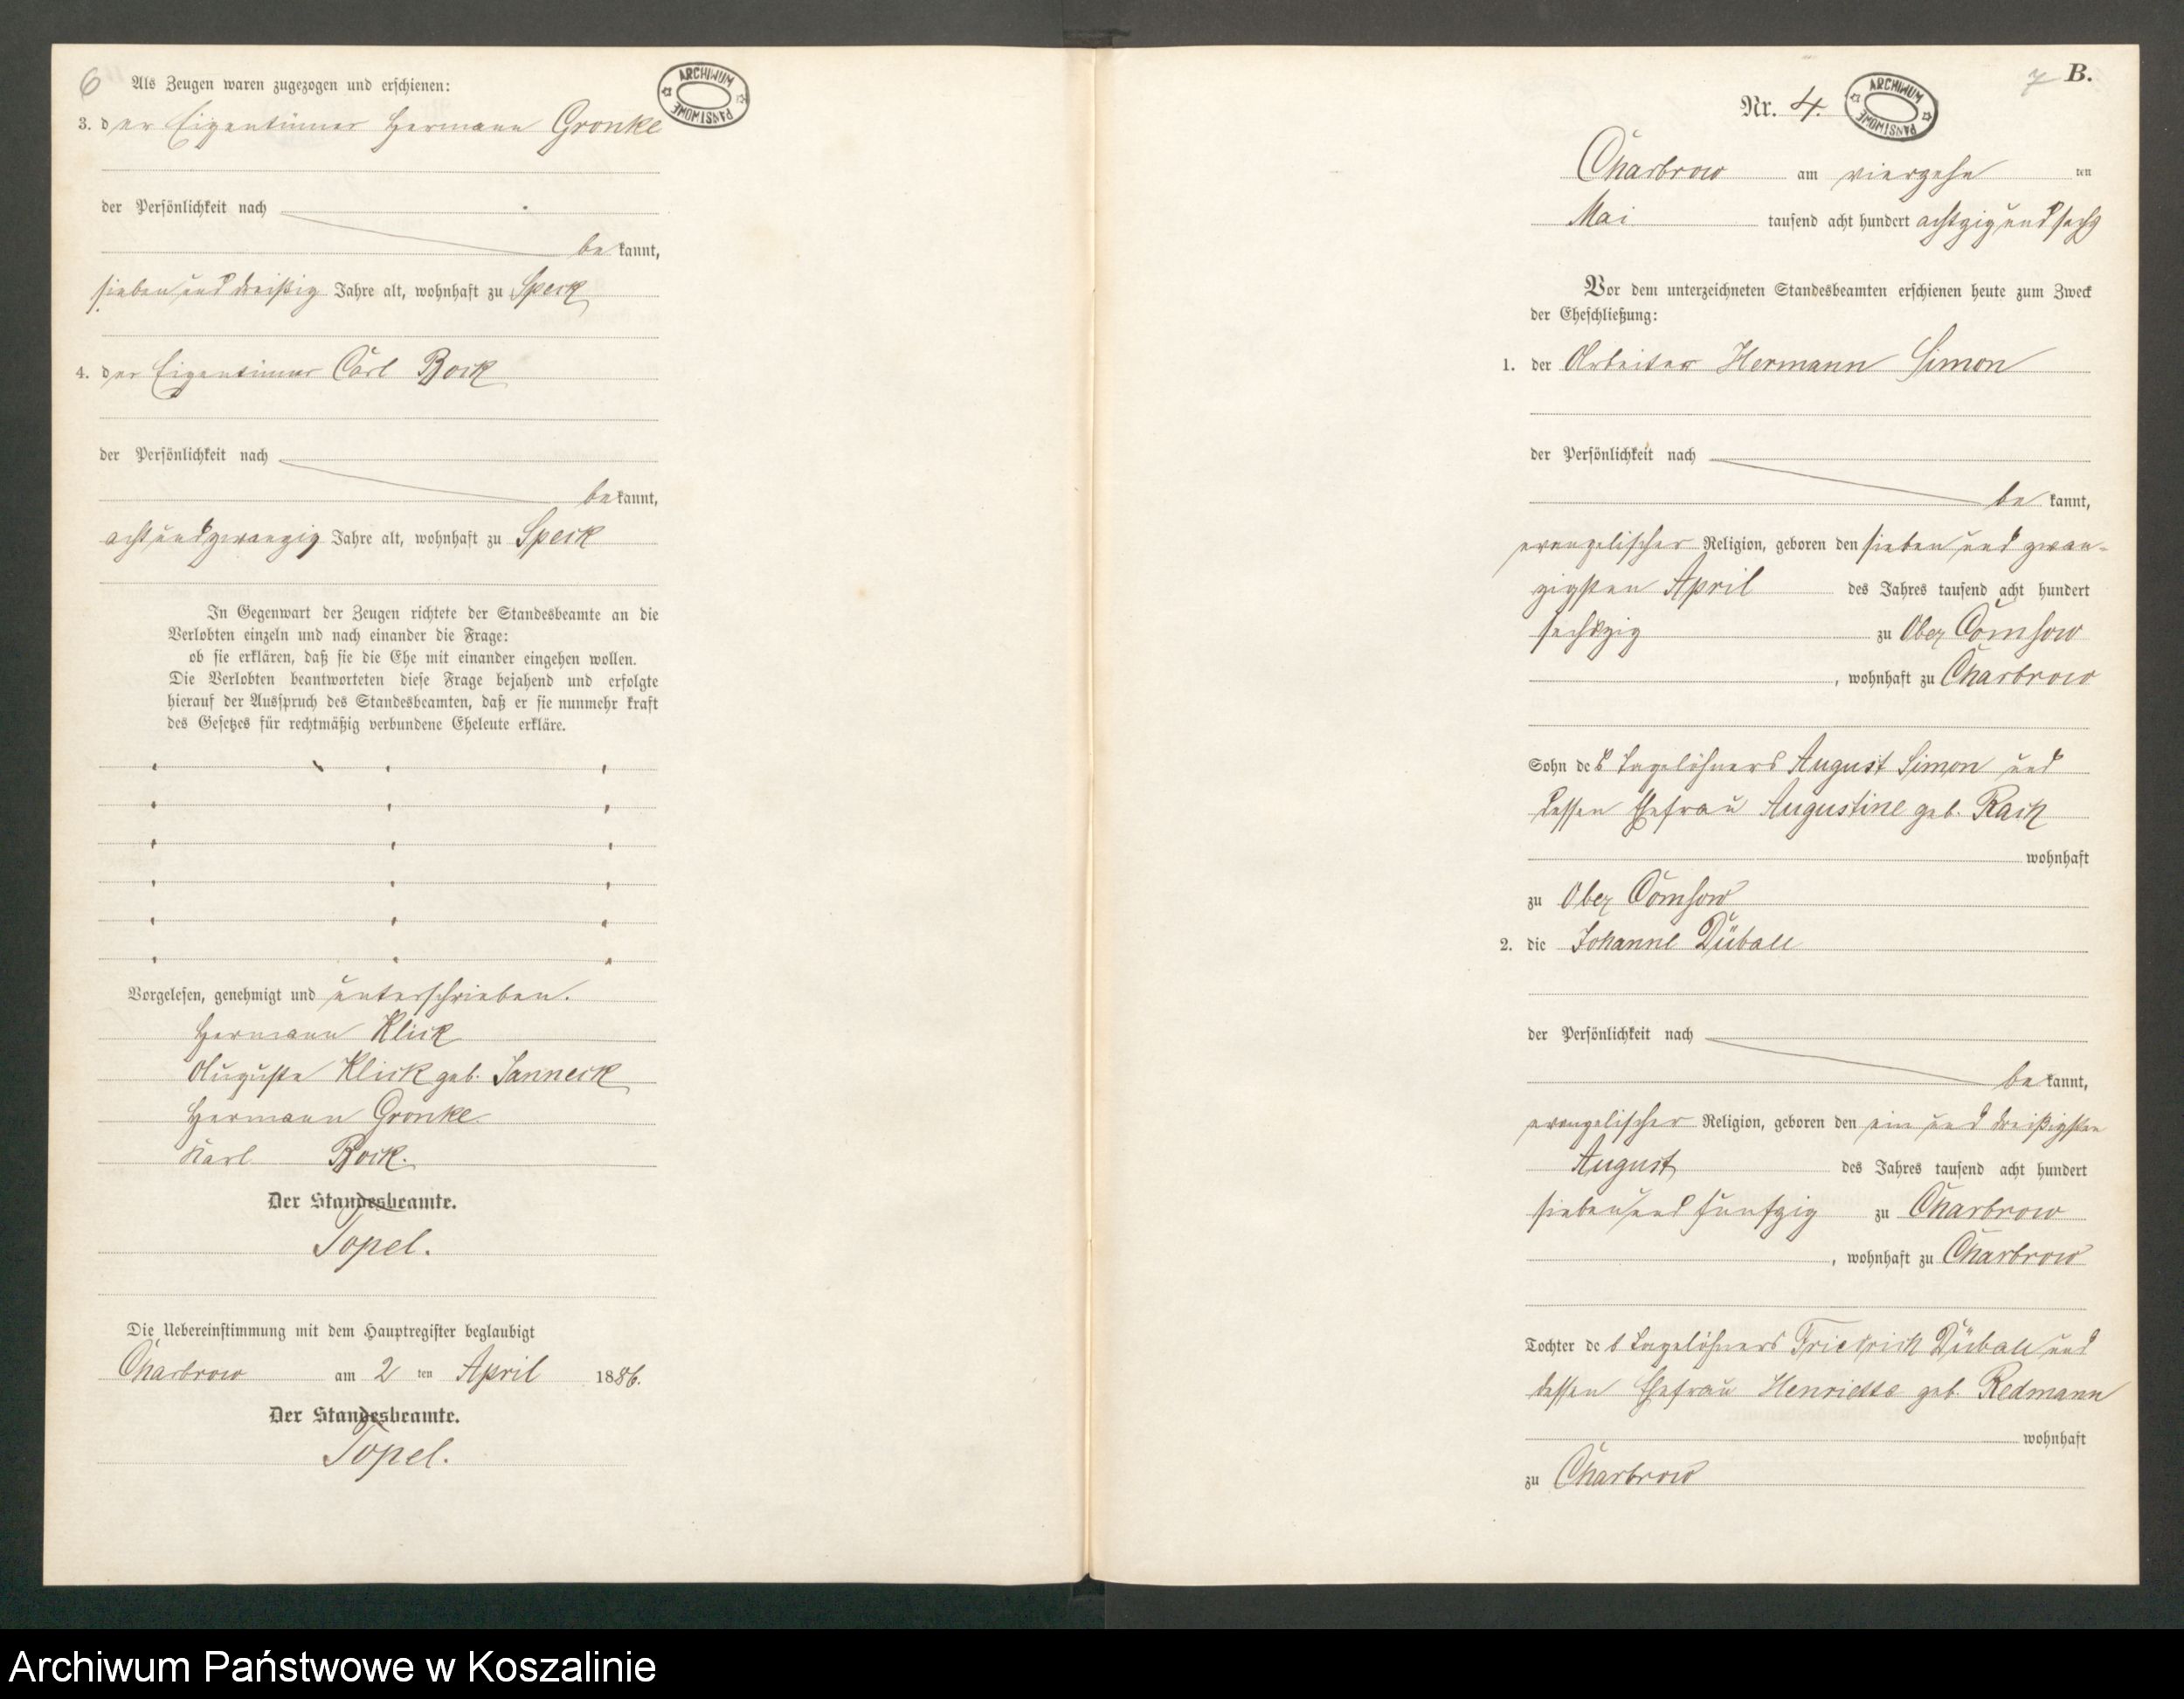 6
Als Zeugen waren zugezogen und erschienen:
ARCHIWUM PAŃSTWOWE
3. der Eigentümer Hermann Gronke
der Persönlichkeit nach
bekannt,
sieben und dreißig Jahre alt, wohnhaft zu Speck
4. der Eigentümer Carl Bock
der Persönlichkeit nach
bekannt,
acht und zwanzig Jahre alt, wohnhaft zu Speck
In Gegenwart der Zeugen richtete der Standesbeamte an die
Verlobten einzeln und nach einander die Frage:
ob sie erklären, daß sie die Ehe mit einander eingehen wollen.
Die Verlobten beantworteten diese Frage bejahend und erfolgte
hierauf der Ausspruch des Standesbeamten, daß er sie nunmehr kraft
des Gesetzes für rechtmäßig verbundene Eheleute erkläre.
Vorgelesen, genehmigt und unterschrieben.
Hermann Klick
Auguste Klick geb. Janneck
Hermann Gronke.
Karl Bock.
Der Standesbeamte.
Topel.
Die Uebereinstimmung mit dem Hauptregister beglaubigt
Charbrow am 2 ten April 1886.
Der Standesbeamte.
Topel.
7 B.
Nr. 4.
ARCHIWUM PAŃSTWOWE
Charbrow am vierzehn ten
Mai tausend acht hundert achtzig und sechs
Vor dem unterzeichneten Standesbeamten erschienen heute zum Zweck
der Eheschließung:
1. der Arbeiter Hermann Simon
der Persönlichkeit nach
bekannt,
evangelischer Religion, geboren den sieben und zwan-
zigsten April des Jahres tausend acht hundert
sechszig zu Ober Comsow
, wohnhaft zu Charbrow
Sohn des Tagelöhners August Simon und
dessen Ehefrau Augustine geb. Rach
wohnhaft
zu Ober Comsow
2. die Johanne Düball
der Persönlichkeit nach
bekannt,
evangelischer Religion, geboren den ein und dreißigsten
August des Jahres tausend acht hundert
sieben und fünfzig zu Charbrow
, wohnhaft zu Charbrow
Tochter des Tagelöhners Friedrich Düball und
dessen Ehefrau Henriette geb. Redmann
wohnhaft
zu Charbrow
Archiwum Państwowe w Koszalinie